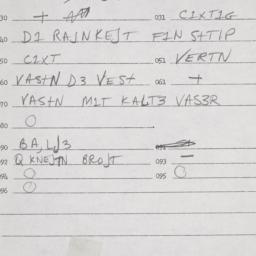 30 + 031 CIXTIG
40 DI RAJNKEJT FIN STTIP
50 CIXT 051 VERTN
60 VASTN D3 VEST 061 +
70 VASTN MIT KALT3 VAS3R
80 O
90 BA,LJ3
92 Q KNEJTN BROJT 093 —
94 O 095 O
96 O